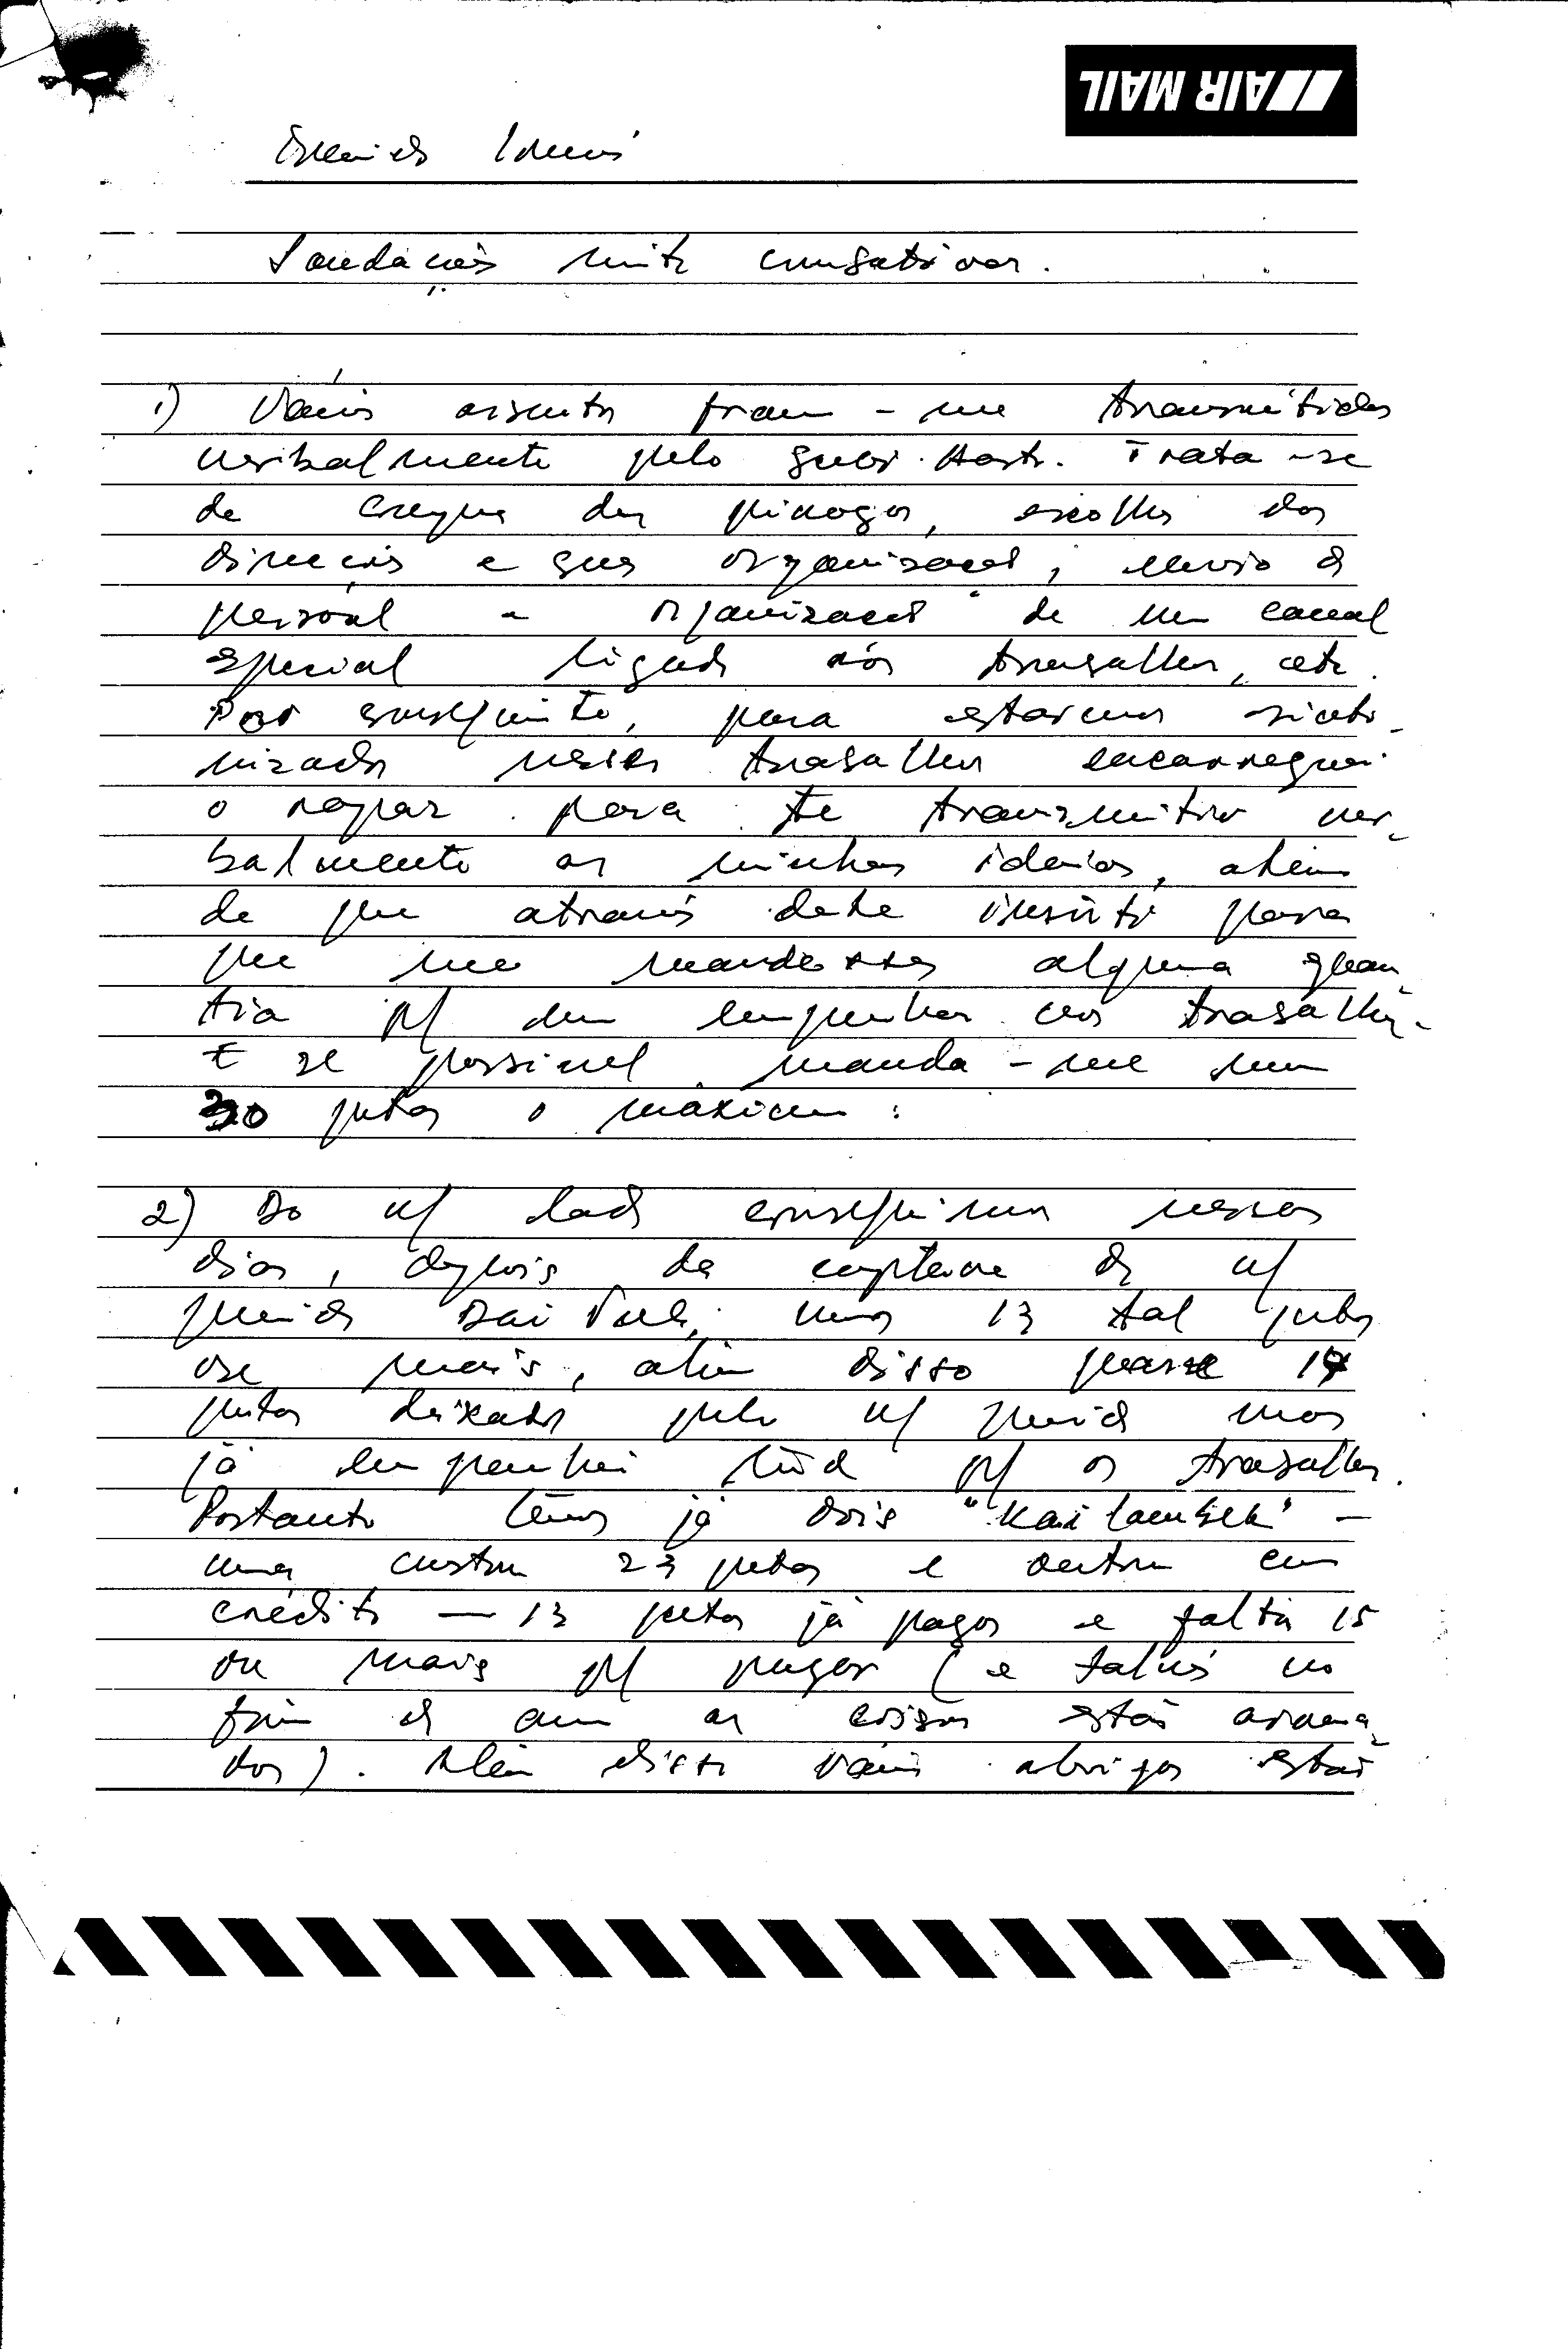 AIR MAIL
Querido Irmão
Saudações muito combativas.
1) Vários assuntos foram-me transmitidos
verbalmente pelo Trata-se
de dos escolha dos
direcções e sua organização, envio de
pessoal e organização de um canal
especial ligado aos trabalhos, etc.
Por conseguinte, para estarmos sinto-
nizados nesses trabalhos encarreguei
o rapaz para te transmitir ver-
balmente as minhas ideias, além
de que através deste insisto para
que me mandasses alguma quan-
tia p/ dar empenho aos trabalhos.
E se possível manda-me um
30 o máximo:
2) Do n/ lado conseguimos nesses
dias, depois da captura do n/
querido uns 13 tal
ou mais, além disso quase 14
deixados pelo n/ querido mas
já empenhei tudo p/ os trabalhos.
Portanto temos já dois "Kailambek" –
uma custou 23 e outro em
crédito — 13 já pagos e falta 15
ou mais p/ pagar (e talvez no
fim do ano as coisas estão arruma-
das). Além disso vários abrigos estão